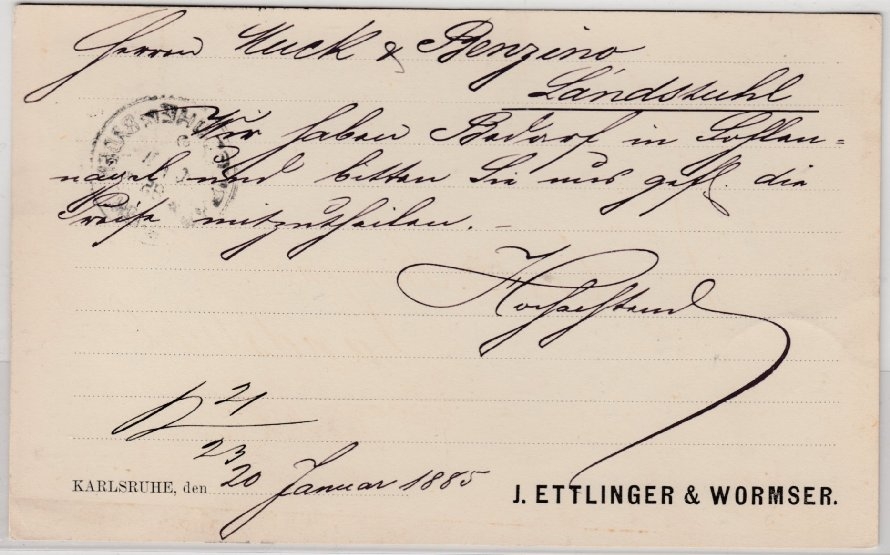 Herren Muck & Benzino
Landstuhl
Wir haben Bedarf in Sohlen=
nägel und bitten Sie uns gefl. die
Preise mitzutheilen. –
Hochachtend
21
23
KARLSRUHE, den 20 Januar 1885
J. ETTLINGER & WORMSER.